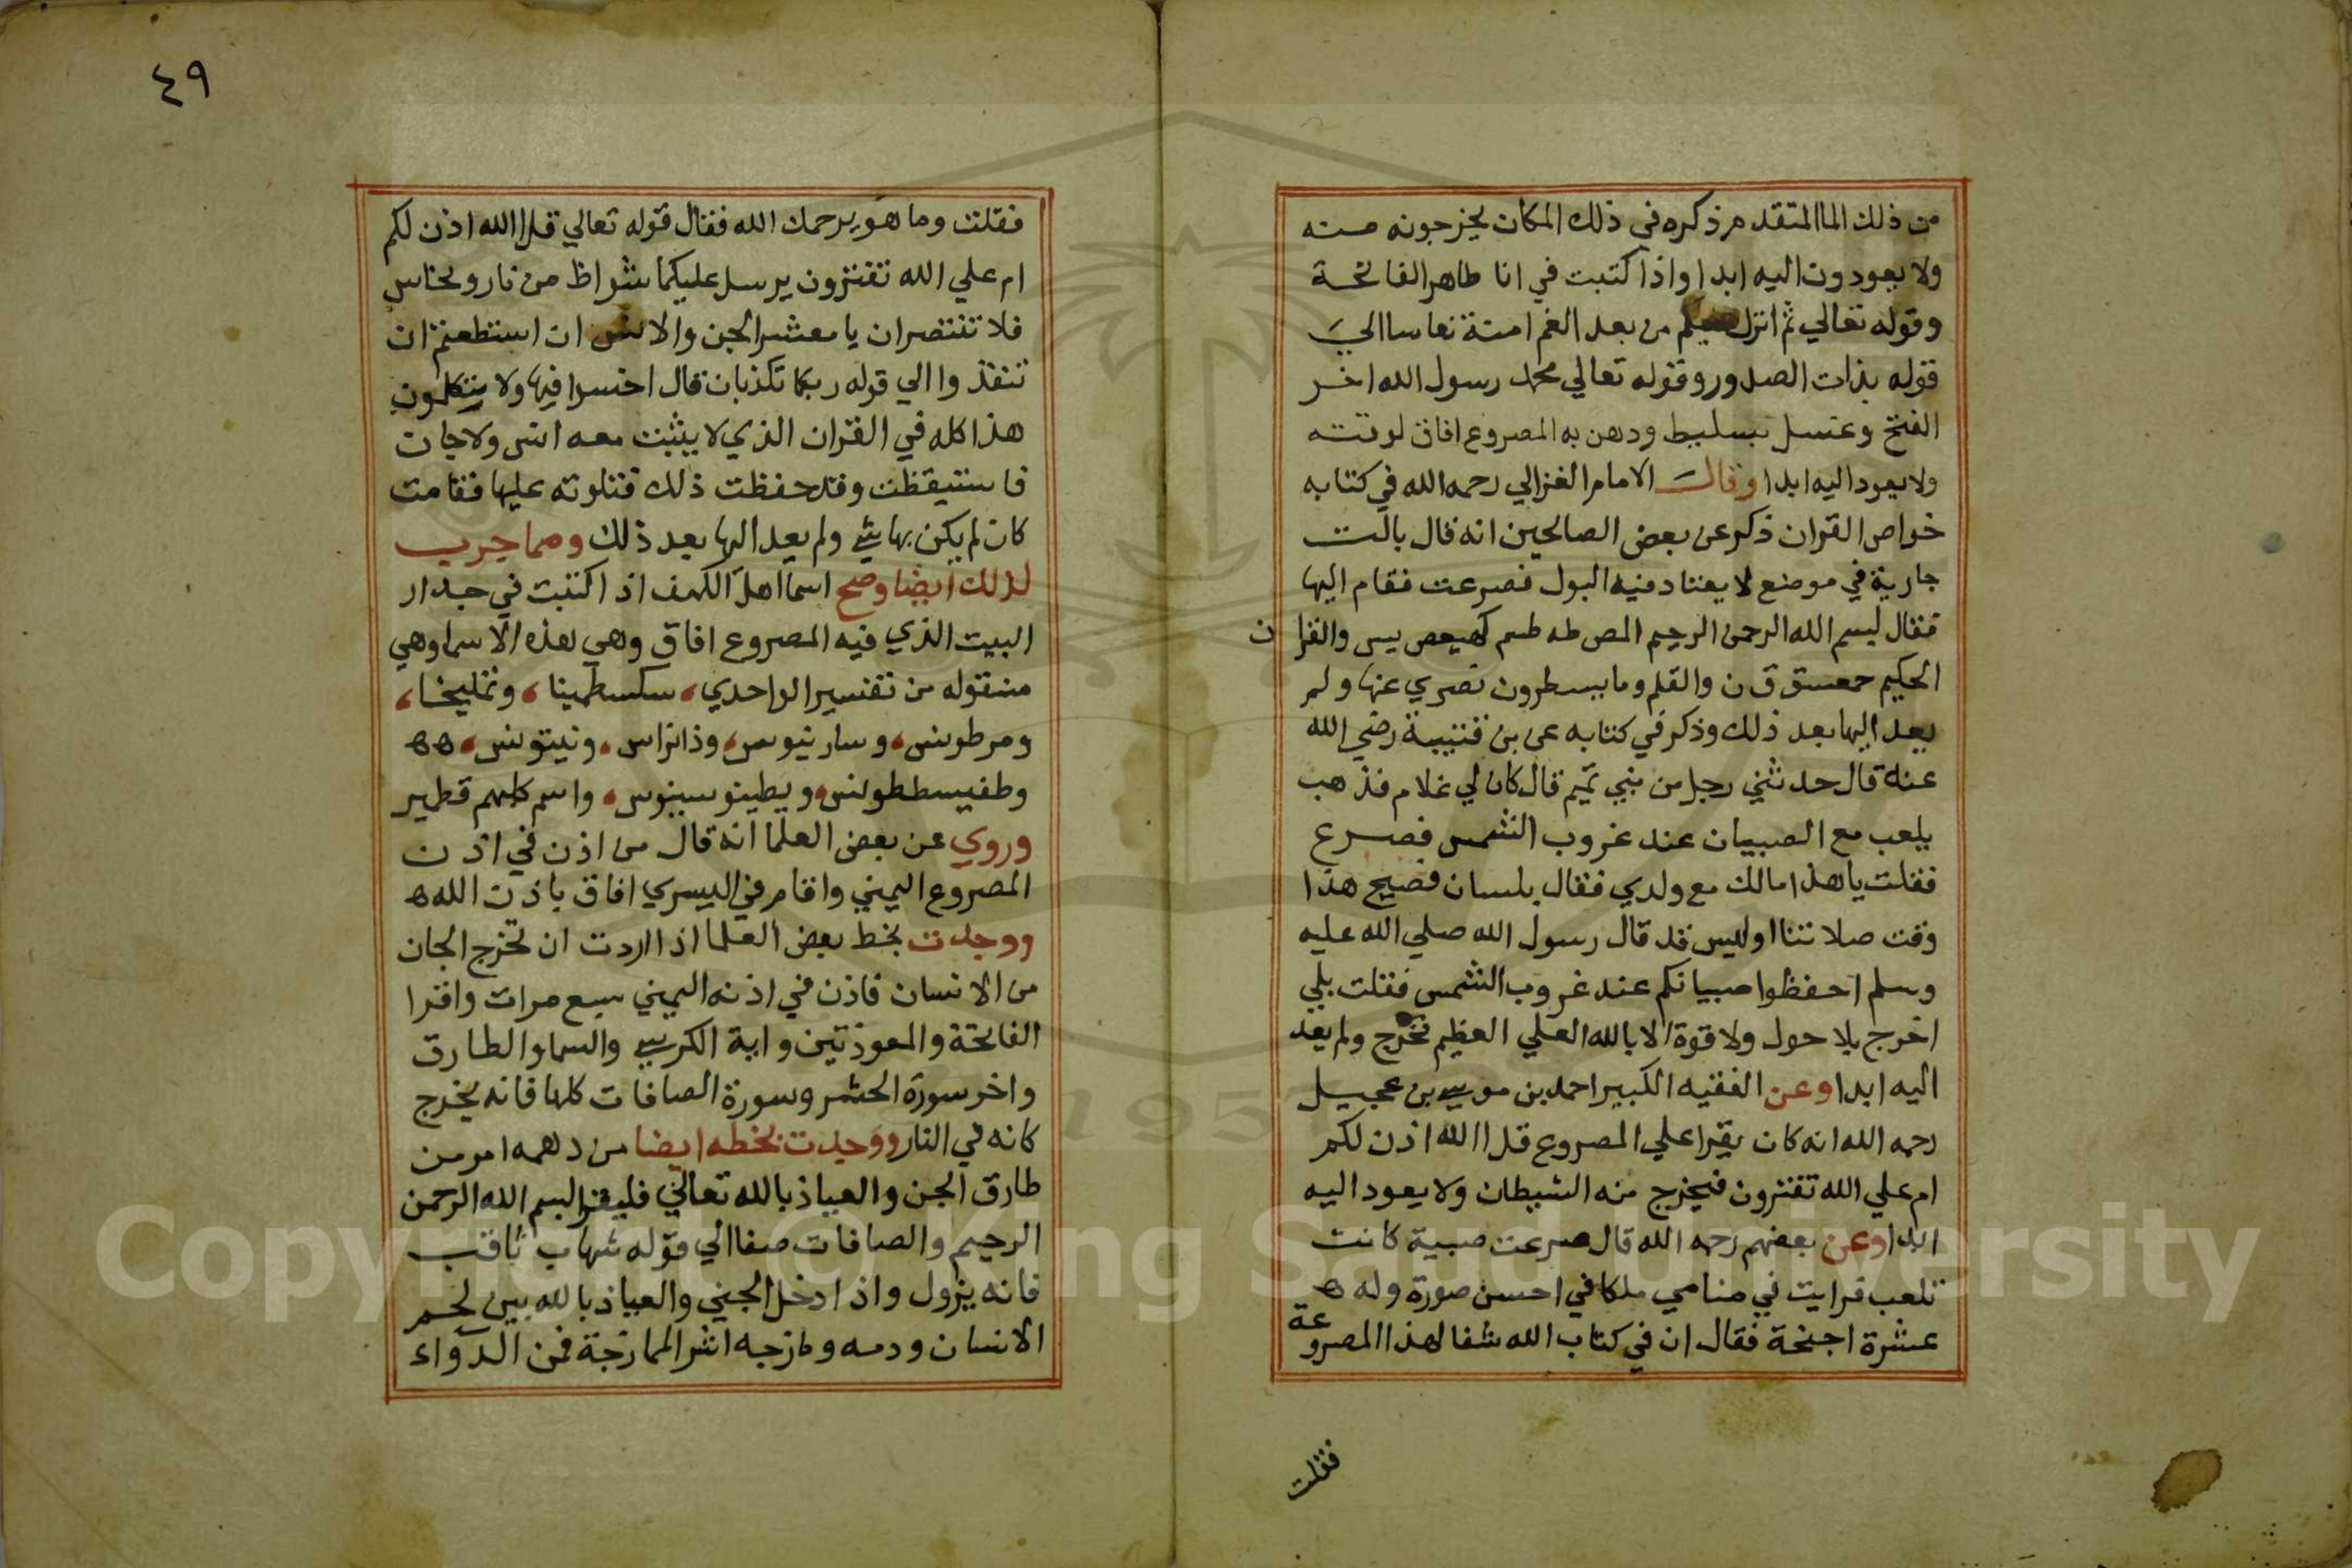 من ذلك الما المتقدم ذكره في ذلك المكان يخرجونه منه
ولا يعودون اليه ابدا واذا كتبت في انا طاهر الفاتحة
وقوله تعالي ثم انزل عليكم من بعد الغم امنة نعاسا الي
قوله بذات الصدور وقوله تعالي محمد رسول الله اخر
الفتح وغسل بسليط ودهن به المصروع افاق لوقته
ولا يعود اليه ابدا وقال الامام الغزالي رحمه الله في كتابه
خواص القران ذكر عن بعض الصالحين انه قال بالت
جارية في موضع لا يعتاد فيه البول فصرعت فقام اليها
فقال بسم الله الرحمن الرحيم المص طه طسم كهيعص يس والقران
الحكيم حمعسق ق ن والقلم وما يسطرون فسري عنها ولم
يعد اليها بعد ذلك وذكر في كتابه عن بن قتيبة رضي الله
عنه قال حدثني رجل من بني تميم قال كان لي غلام فذهب
يلعب مع الصبيان عند غروب الشمس فصرع
فقلت يا هذا مالك مع ولدي فقال بلسان فصيح هذا
وقت صلاتنا اوليس قد قال رسول الله صلي الله عليه
وسلم احفظوا صبيانكم عند غروب الشمس فقلت بلي
اخرج بلا حول ولا قوة الا بالله العلي العظيم فخرج ولم يعد
اليه ابدا وعن الفقيه الكبير احمد بن موسي بن عجيل
رحمه الله انه كان يقرا علي المصروع قل االله اذن لكم
ام علي الله تفترون فيخرج منه الشيطان ولا يعود اليه
ابدا وعن بعضهم رحمه الله قال صرعت صبية كانت
تلعب فرايت في منامي ملكا في احسن صورة وله ه
عشرة اجنحة فقال ان في كتاب الله شفا لهذا المصروعة
فقلت
٤٩
فقلت وما هو يرحمك الله فقال قوله تعالي قل االله اذن لكم
ام علي الله تفترون يرسل عليكما شواظ من نار ونحاس
فلا تنتصران يا معشر الجن والانس ان استطعتم ان
تنفذوا الي قوله ربكما تكذبان قال اخسوا فيها ولا يتكلمون
هذا كله في القران الذي لا يثبت معه انس ولا جان
فاستيقظت وقد حفظت ذلك فتلوته عليها فقامت
كان لم يكن بها شي ولم يعد اليها بعد ذلك ومما جرب
لذلك ايضا وصح اسما اهل الكهف اذا كتبت في جدار
البيت الذي فيه المصروع افاق وهي هذه الاسما وهي
منقوله من تفسير الواحدي، سكسطمينا، وتمليخا،
ومرطونس، وسارنيوس، وذانراس، ونيتونس، هه
وطفيسططونس، ويطينوسينوس، واسم كلبهم قطمير
وروي عن بعض العلما انه قال من اذن في اذن
المصروع اليمني واقام في اليسري افاق باذن الله ه
ووجدت بخط بعض العلما اذا اردت ان تخرج الجان
من الانسان فاذن في اذنه اليمني سبع مرات واقرا
الفاتحة والمعوذتين واية الكرسي والسما والطارق
واخر سورة الحشر وسورة الصافات كلها فانه يخرج
كانه في النار ووجدت بخطه ايضا من دهمه امر من
طارق الجن والعياذ بالله تعالي فليقرا بسم الله الرحمن
الرحيم والصافات صفا الي قوله شهاب ثاقب
فانه يزول واذا دخل الجني والعياذ بالله بين لحم
الانسان ودمه ومازجه اشر الممازجة فمن الدواء
Copyright © King Saud University
195